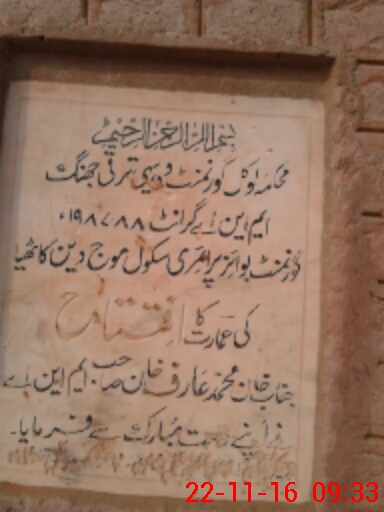 بسم اللہ الرحمٰن الرحیم
محکمہ لوکل گورنمنٹ و دیہی ترقی جھنگ
ایم این اے گرانٹ ۸۸ ۱۹۸۷ء
گورنمنٹ بوائز پرائمری سکول موج دین کاٹھیا
کی عمارت کا افتتاح
جناب خان محمد عارف خان صاحب ایم این اے
نے اپنے دست مبارک سے فرمایا۔
22-11-16 09:33